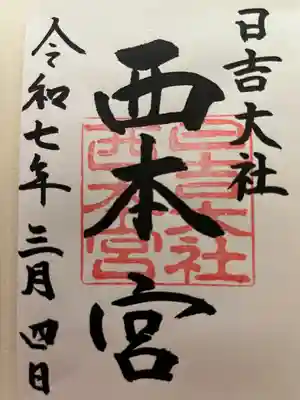 日吉大社
西本宮
日吉大社
西本宮
令和七年三月四日